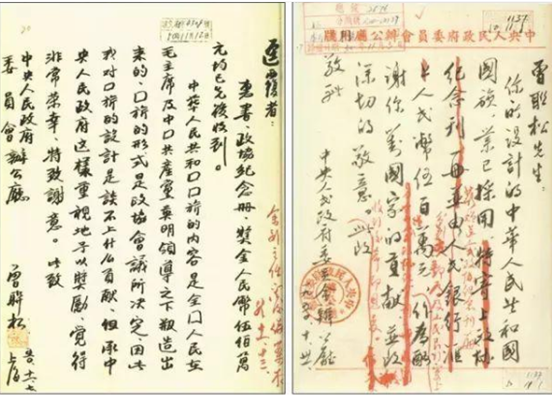 中央人民政府委員會辦公廳用牋
1137
曾聯松先生：
你所設計的中華人民共和國
國旗，業已採用。特寄上政协
紀念刊一冊並由人民銀行滙
上人民幣伍百萬元，作為酬
謝你對國家的貢献，並致
深切的敬意。此致
敬礼
中央人民政府委員会辦公廳
逕覆者：
惠書、政協紀念冊、獎金人民幣伍佰萬
元均已先後收到。
中華人民共和口口旂的內容是全口人民在
毛主席及中口共產黨英明領導之下製造出
來的，口旂的形式是政協會議所決定，因此
我对口旂的設計是談不上什么貢献，但承中
央人民政府這樣重視地予以獎勵，覺得
非常荣幸，特致謝意。此致
中央人民政府
委員會辦公廳
曾聯松 上